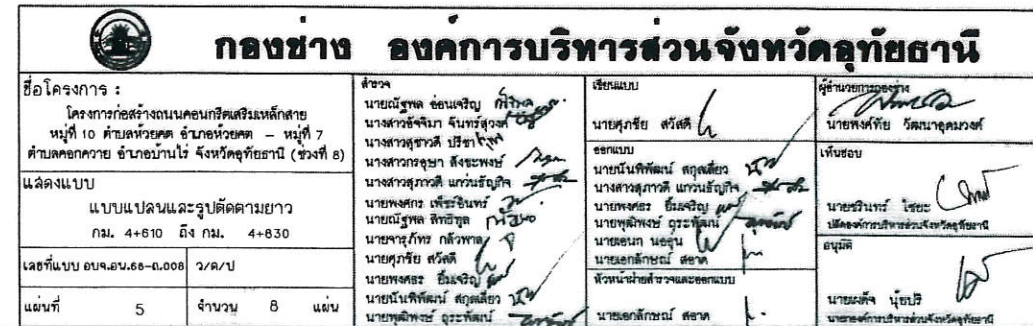 กองช่าง องค์การบริหารส่วนจังหวัดอุทัยธานี
ชื่อโครงการ :
โครงการก่อสร้างถนนคอนกรีตเสริมเหล็กสาย
หมู่ที่ 10 ตำบลห้วยคต อำเภอห้วยคต - หมู่ที่ 7
ตำบลคอกควาย อำเภอบ้านไร่ จังหวัดอุทัยธานี (ช่วงที่ 8)
แสดงแบบ
แบบแปลนและรูปตัดตามยาว
กม. 4+610 ถึง กม. 4+830
เลขที่แบบ อบจ.อน.68-ถ.008 ว/ด/ป
แผ่นที่ 5 จำนวน 8 แผ่น
สำรวจ
นายณัฐพล อ่อนเจริญ
นางสาวอัจจิมา จันทร์สุวงศ์
นางสาวสุชาวดี ปรีชา
นางสาวกรอุษา สังขะพงษ์
นางสาวสุภาวดี แกว่นธัญกิจ
นายพงศกร เพ็ชรอินทร์
นายณัฐพล สิทธิกุล
นายจารุภัทร กล้วพาล
นายศุภชัย สวัสดี
นายพงศธร ยิ้มเจริญ
นายนันทิพัฒน์ สกุลเลี่ยว
นายพุฒิพงษ์ ดุระพัฒน์
เขียนแบบ
นายศุภชัย สวัสดี
ออกแบบ
นายนันทิพัฒน์ สกุลเลี่ยว
นางสาวสุภาวดี แกว่นธัญกิจ
นายพงศธร ยิ้มเจริญ
นายพุฒิพงษ์ ดุระพัฒน์
นายเอนก นออุ่น
นายเอกลักษณ์ สอาด
หัวหน้าฝ่ายสำรวจและออกแบบ
นายเอกลักษณ์ สอาด
ผู้อำนวยการกองช่าง
นายพงศ์ทัย วัฒนาอุดมวงศ์
เห็นชอบ
นายชรินทร์ ไชยะ
ปลัดองค์การบริหารส่วนจังหวัดอุทัยธานี
อนุมัติ
นายเผด็จ นุ้ยปรี
นายกองค์การบริหารส่วนจังหวัดอุทัยธานี